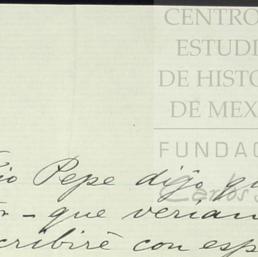 CENTRO
ESTUDI
DE HISTO
DE MEX
FUNDAC
Carlos S
io Pepe dijo qu
que verían
cribiré con esp